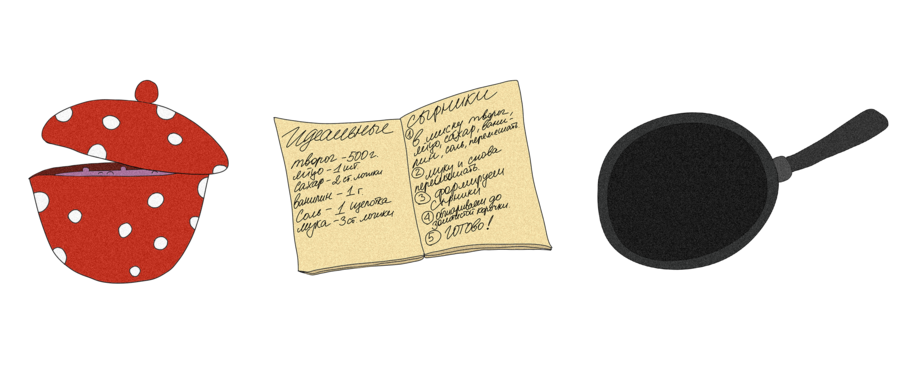 Идеальные
творог - 500 г.
яйцо - 1 шт.
сахар - 2 ст. ложки
ванилин - 1 г.
Соль - 1 щепотка
мука - 3 ст. ложки
сырники
① в миску творог,
яйцо, сахар, вани-
лин, соль, перемешать.
② муки и снова
перемешать.
③ формируем
сырники
④ обжариваем до
золотой корочки.
⑤ готово!